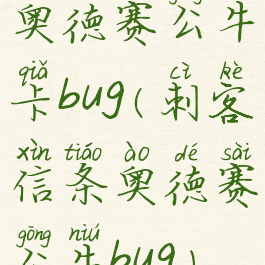 奥德赛公牛
qiǎ cì kè
卡bug(刺客
xìn tiáo ào dé sài
信条奥德赛
gōng niú
公牛bug)